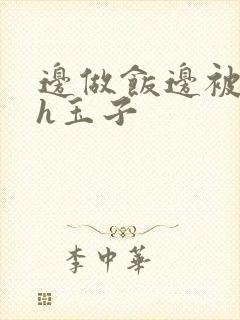 邊做飯邊被
h玉子
李中華